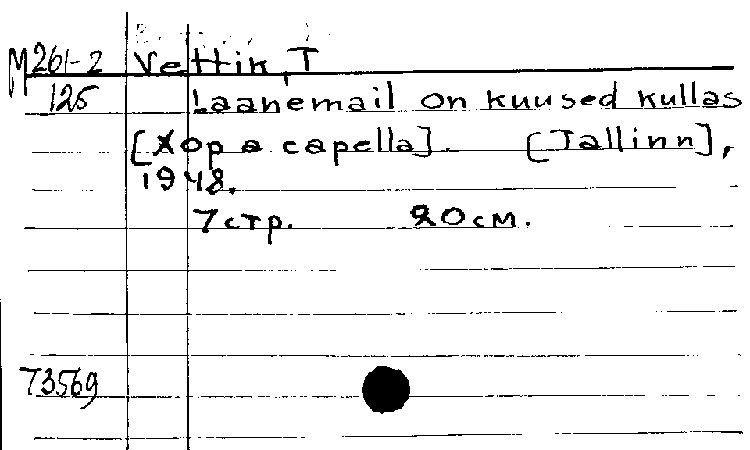 M261-2 Vettik, T
125 Laanemail on kuused kullas
[Хор a capella]. [Tallinn],
1948.
7 стр. 20 см.
73569